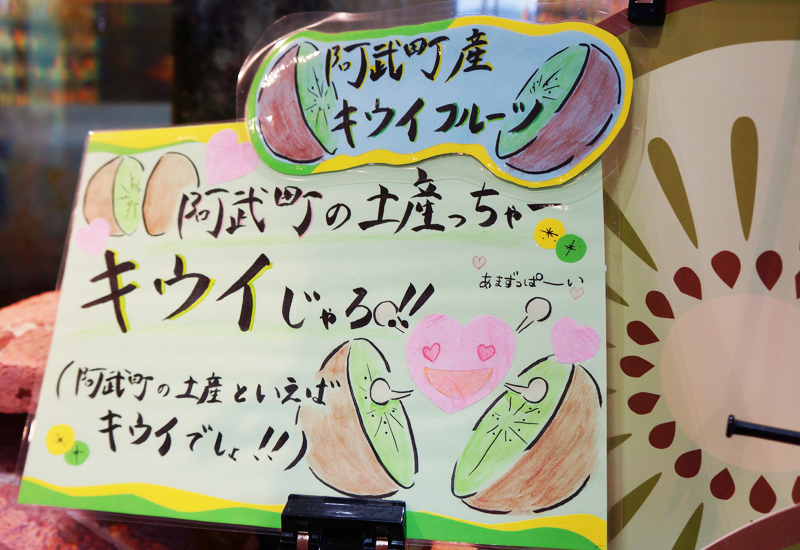 阿武町産
キウイフルーツ
阿武町の土産っちゃー
キウイじゃろ!!
あまずっぱ〜い
(阿武町の土産といえば
キウイでしょ!!)